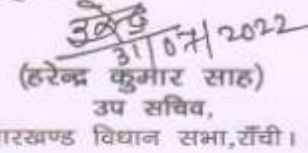 31/07/2022
(हरेन्द्र कुमार साह)
उप सचिव,
विधान सभा,राँची।